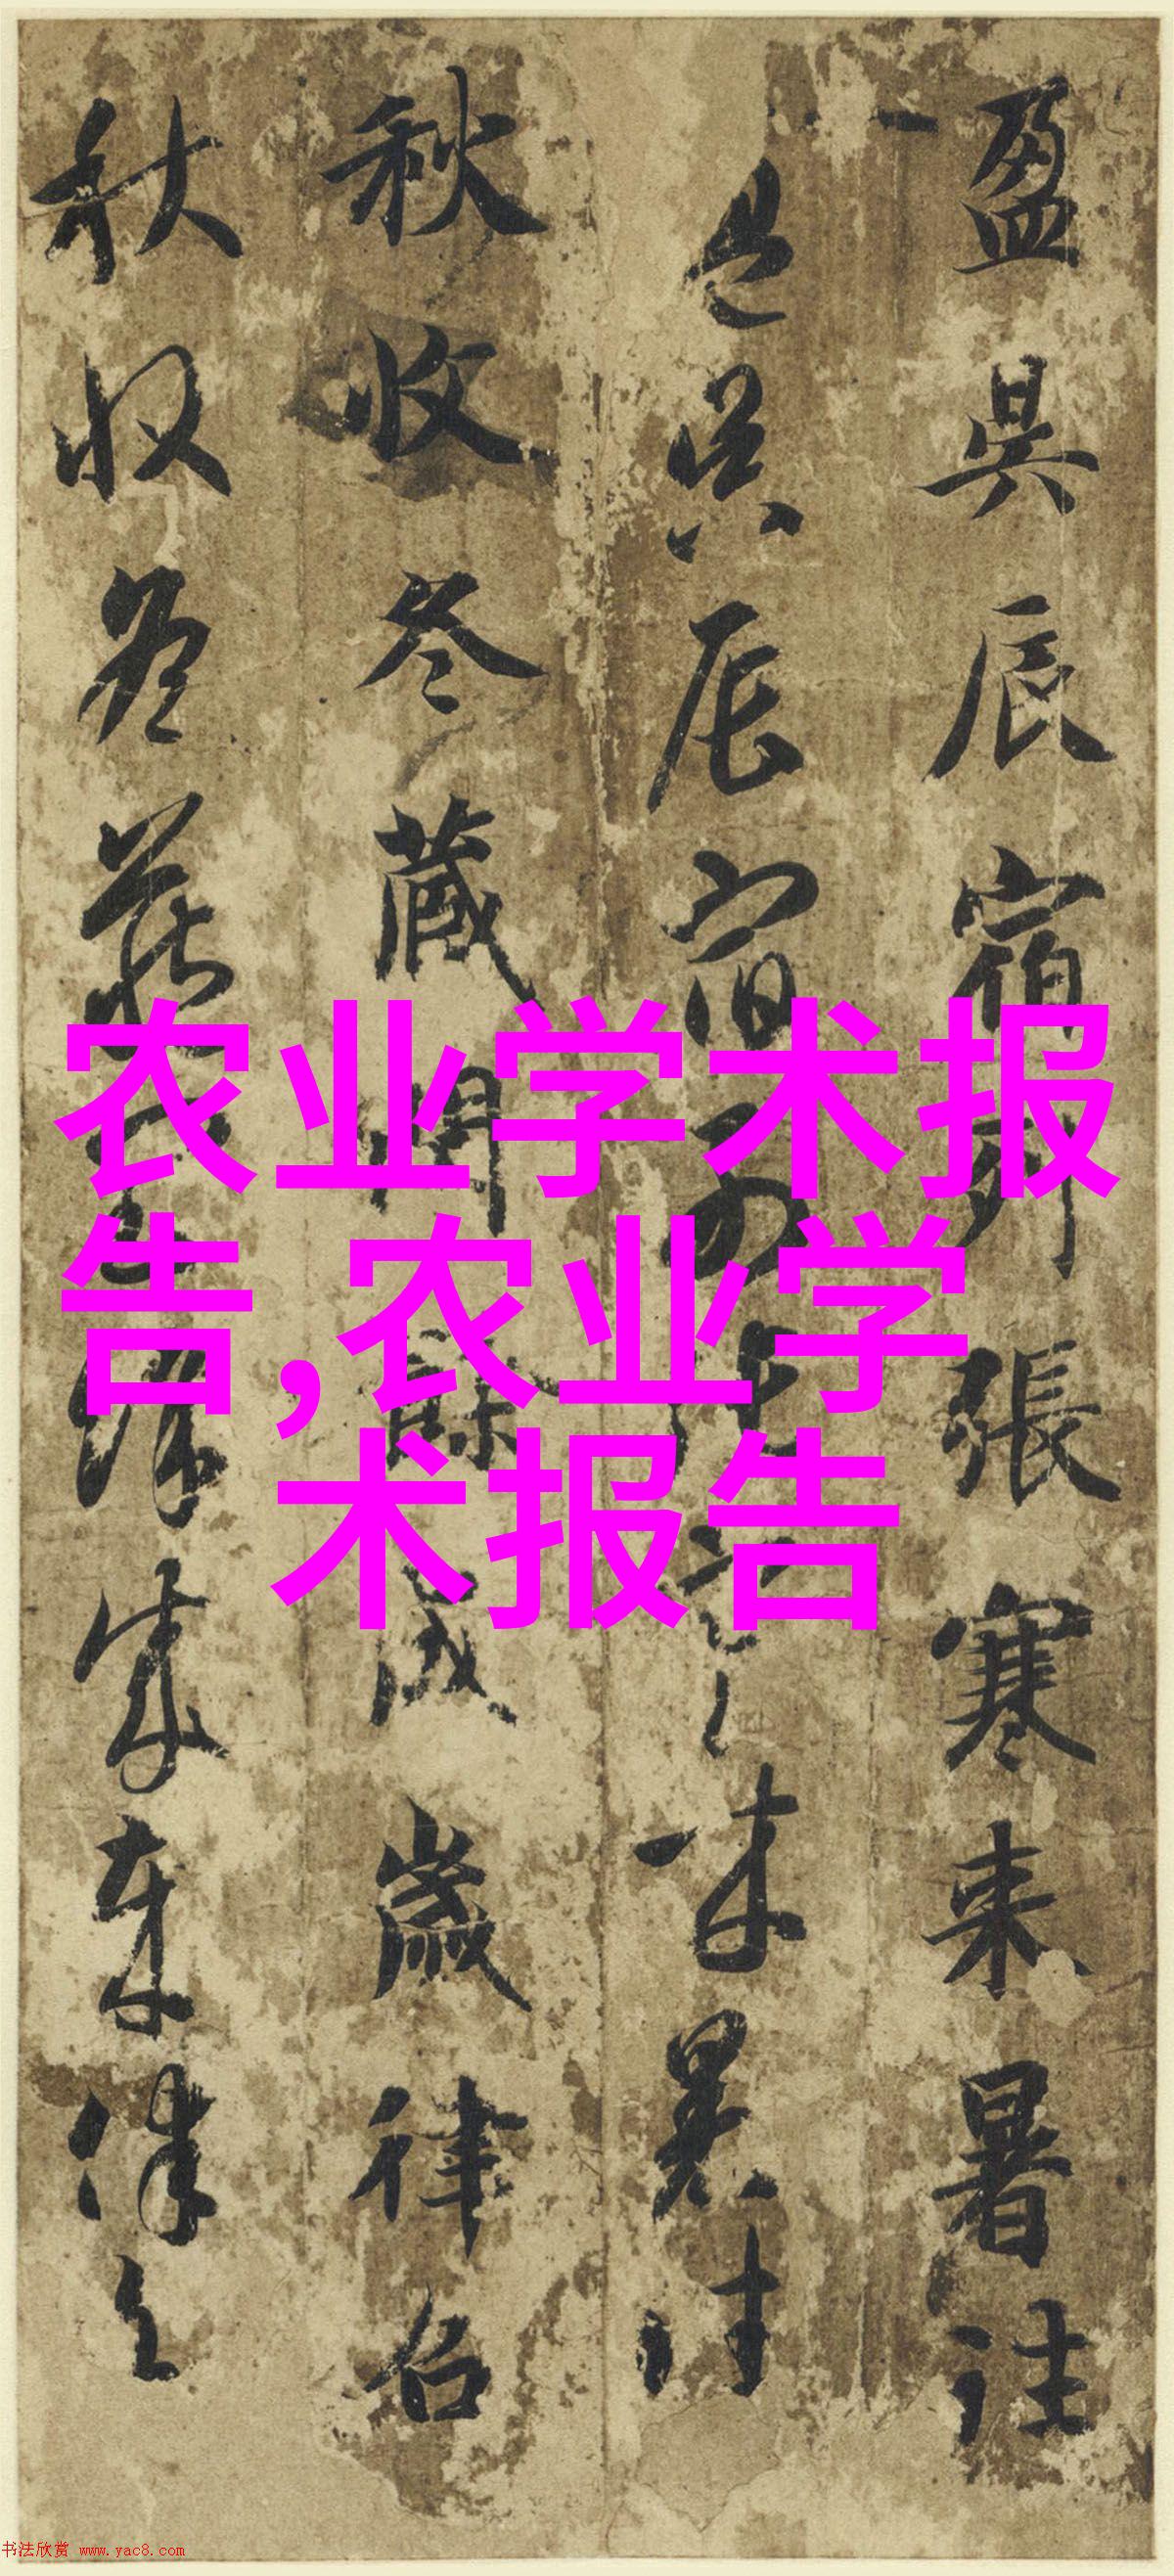 盈昃辰宿列張寒来暑往
盈昃辰宿列張寒来暑往
秋收冬藏閏餘成歲律召
秋收冬藏閏餘成歲律召
农业学术报
告,农业学
术报告
书法欣赏 www.yac8.com